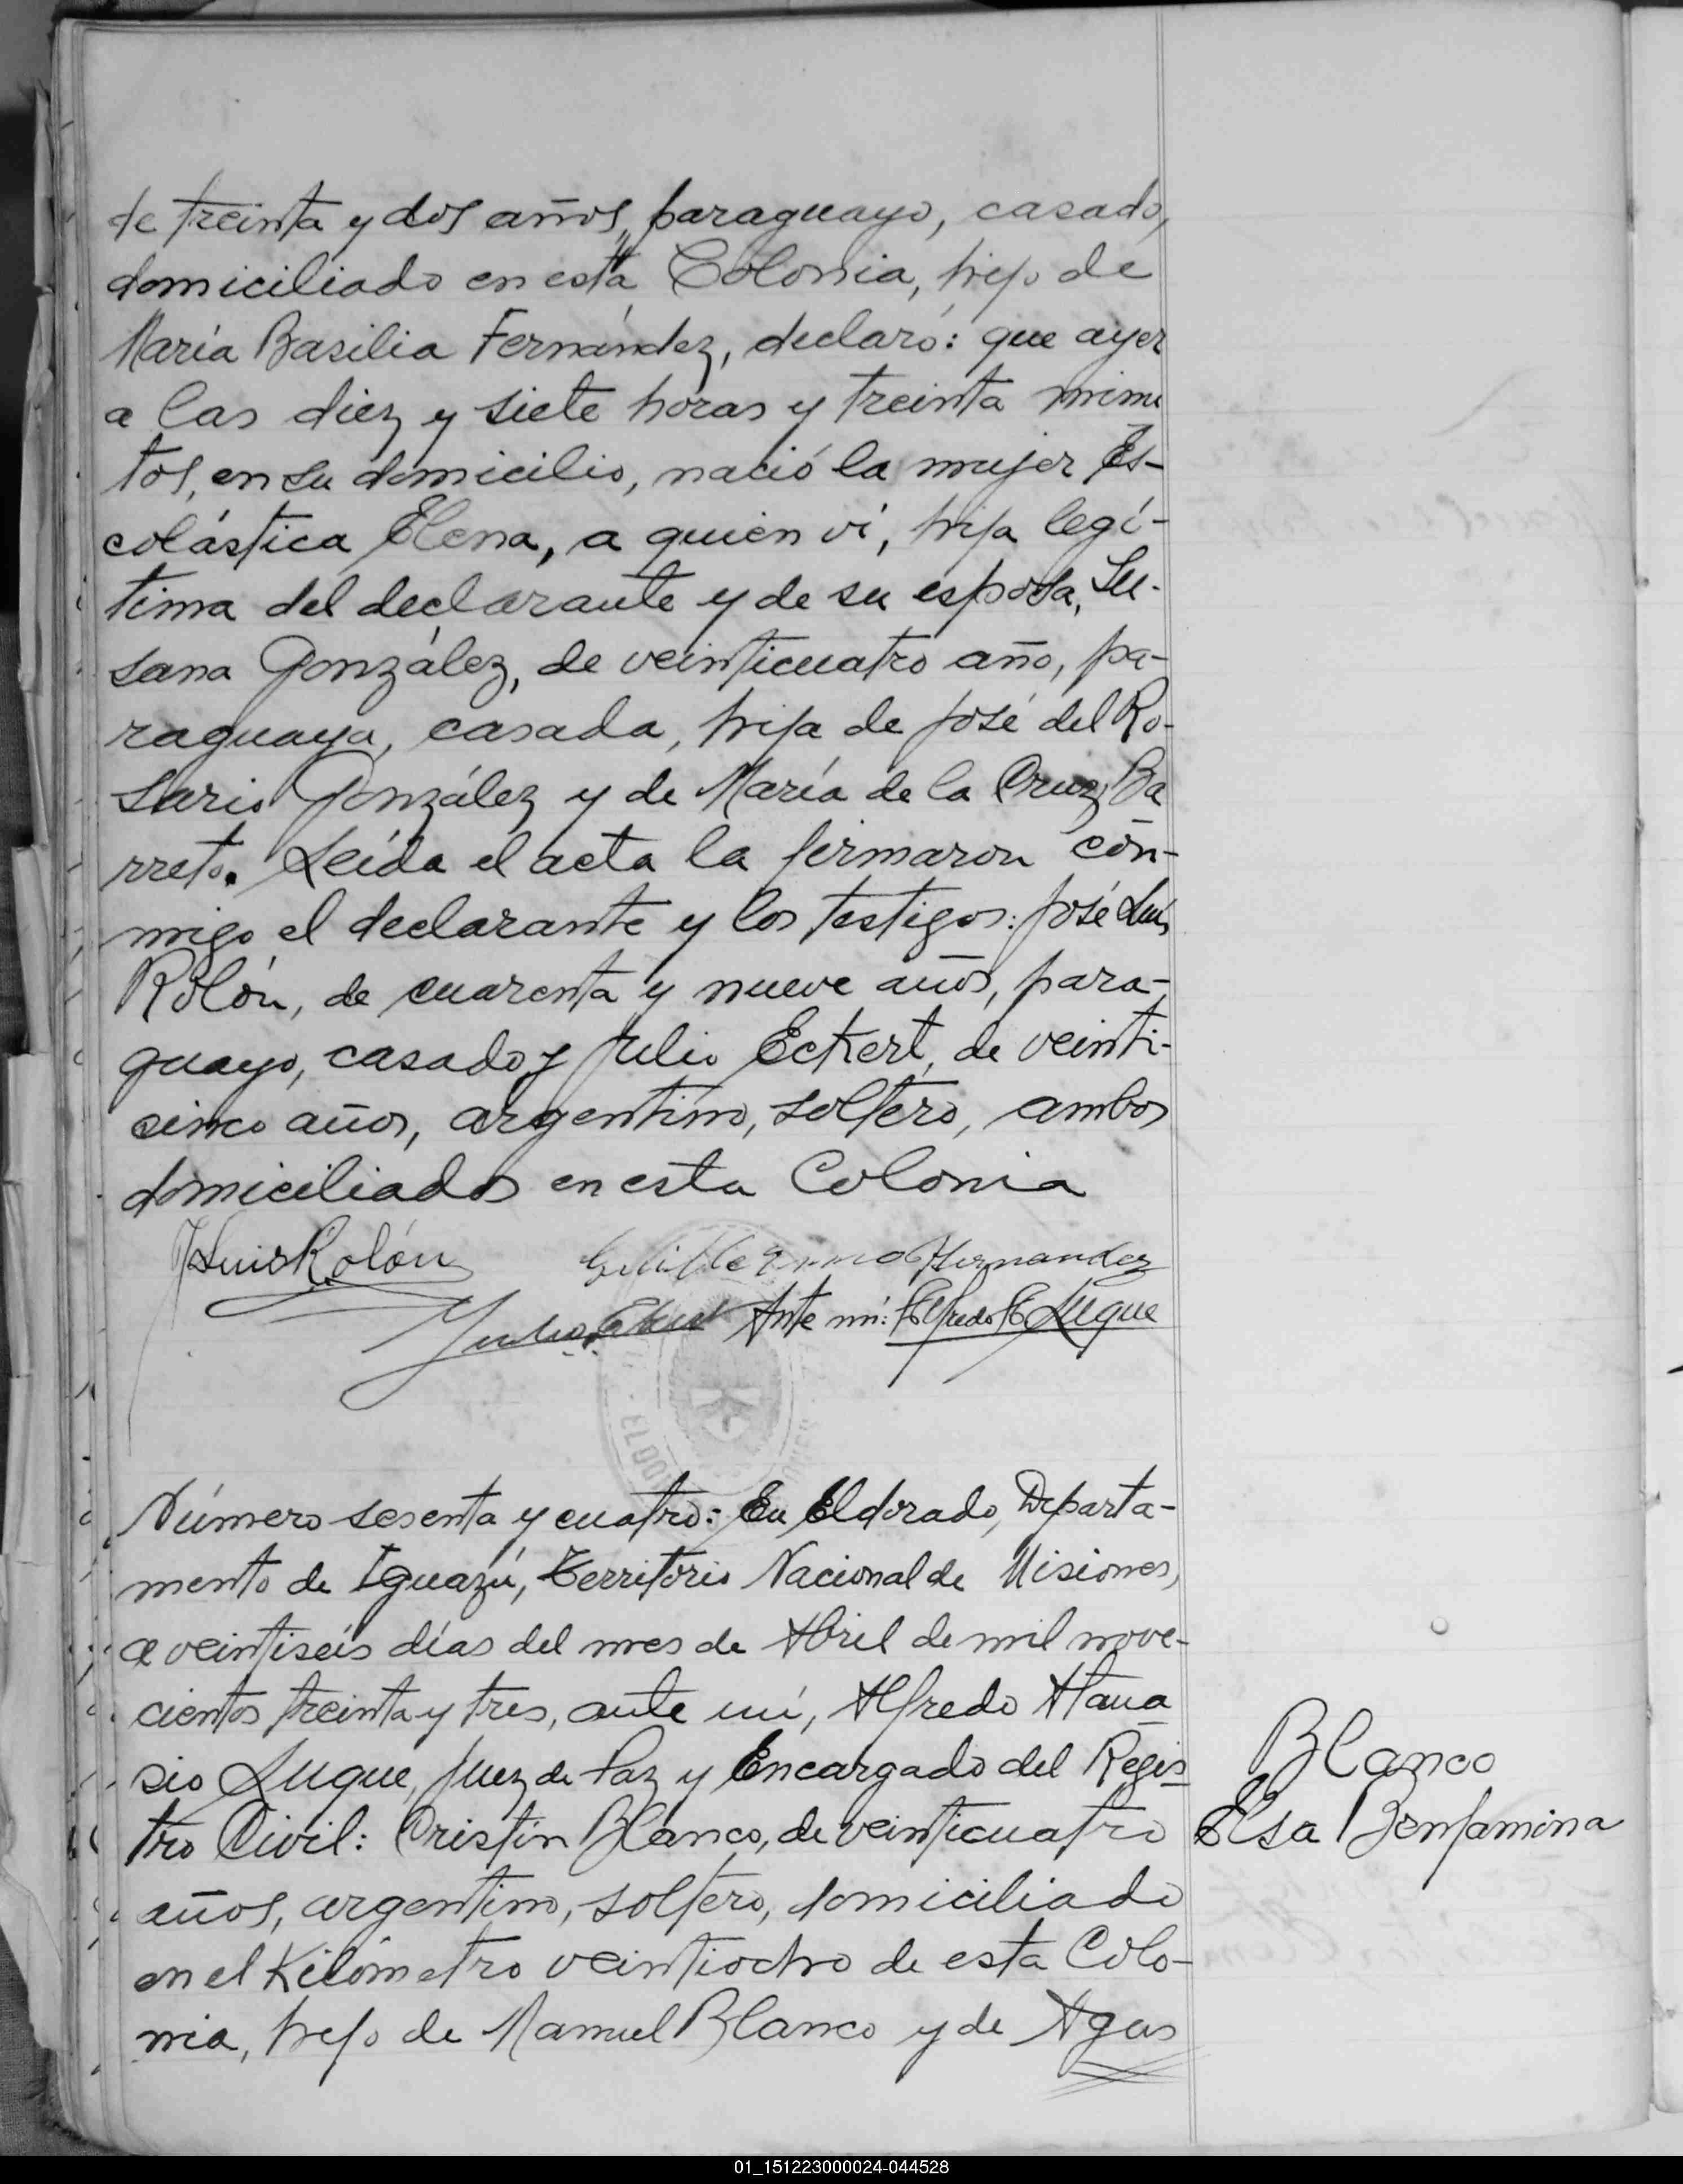 de treinta y dos años, paraguayo, casado,
domiciliado en esta Colonia, hijo de
María Basilia Fernández, declaró: que ayer
a las diez y siete horas y treinta minu
tos, en su domicilio, nació la mujer Es-
colástica Elena, a quien vi, hija legí-
tima del declarante y de su esposa, Su-
sana González, de veinticuatro año, pa-
raguaya, casada, hija de José del Ro-
sario González y de María de la Cruz Ba
rreto. Leída el acta la firmaron con-
migo el declarante y los testigos: José Luis
Rolón, de cuarenta y nueve años, para-
guayo, casado y Julio Eckert, de veinti-
cinco años, argentino, soltero, ambos
domiciliados en esta Colonia
J Luis Rolón
Guillermo Hernandez
Julio Eckert Ante mí: Alfredo A Luque
ELDO
Número sesenta y cuatro: En Eldorado, Departa-
mento de Iguazú, Territorio Nacional de Misiones,
a veintiseis días del mes de Abril de mil nove-
cientos treinta y tres, ante mí, Alfredo Atana
sio Luque, Juez de Paz y Encargado del Regis
tro Civil: Cristín Blanco, de veinticuatro
años, argentino, soltero, domiciliado
en el Kilómetro veintiocho de esta Colo-
nia, hijo de Manuel Blanco y de Agus
Blanco
Elsa Benjamina
01_151223000024-044528